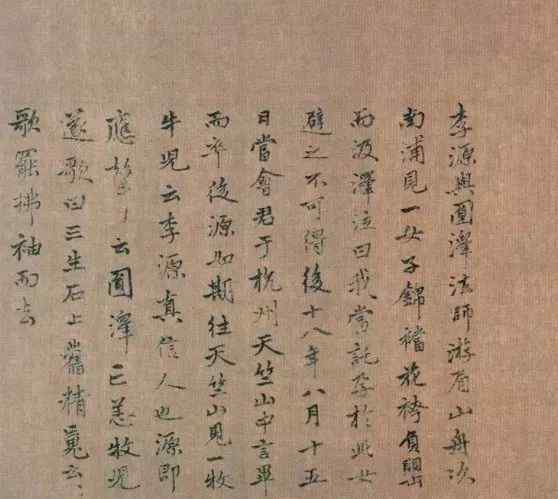 李源與圓澤法師游眉山舟次
南浦見一女子錦襠花袴負甖
而汲澤泣曰我當託孕於此女
避之不可得後十八年八月十五
日當會君于杭州天竺山中言畢
而卒後源如期往天竺山見一牧
牛兒云李源真信人也源即
應聲云圓澤亡恙牧兒
遂歌曰三生石上舊精魂云〻
歌罷拂袖而去